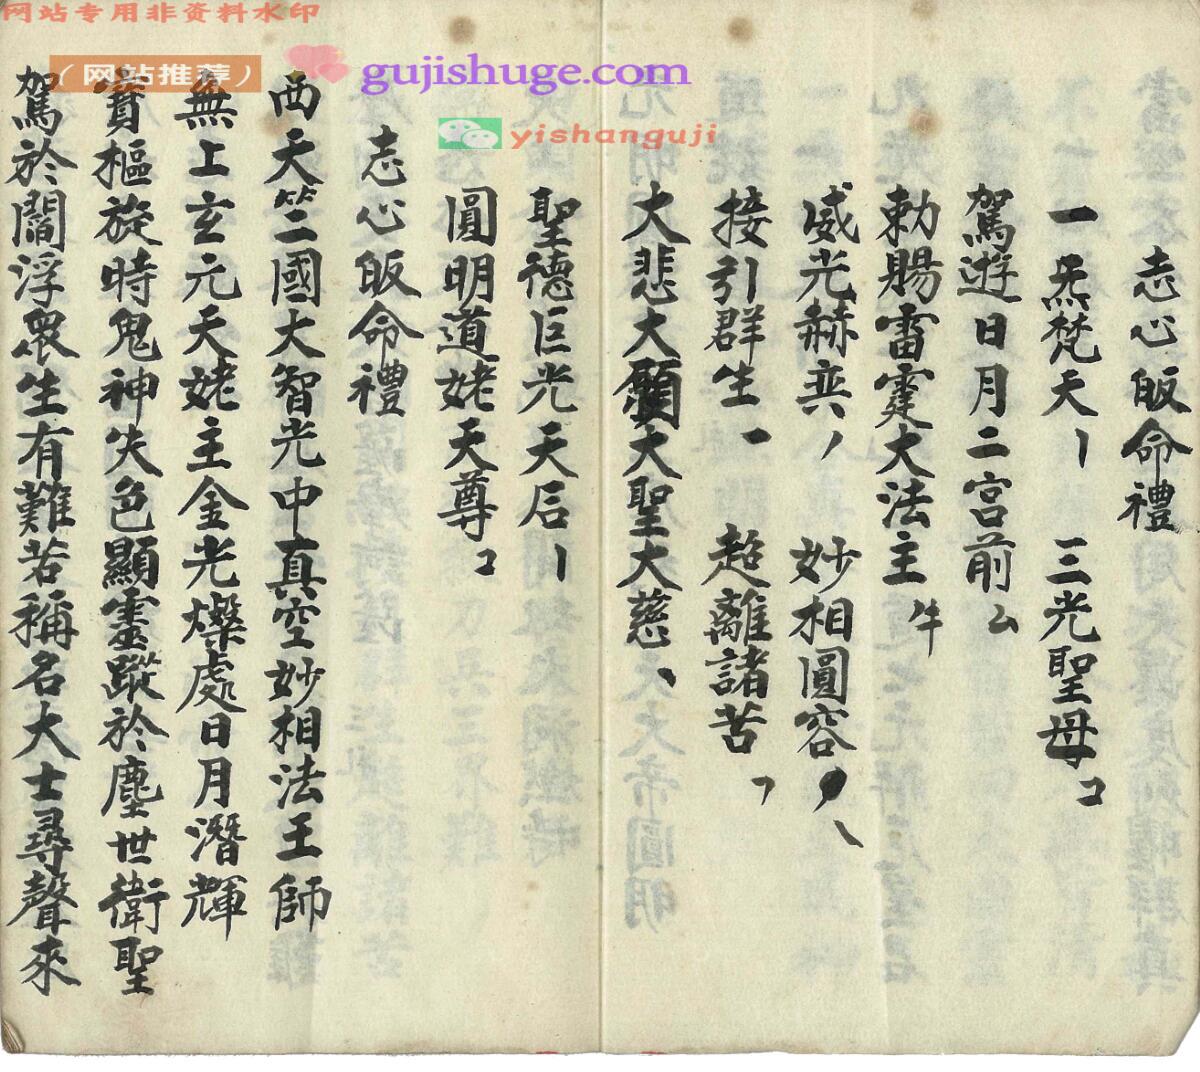 网站专用非资料水印
(网站推荐)
gujishuge.com
yishanguji
志心皈命禮
一炁梵天 三光聖母
駕遊日月二宮前
勅賜雷霆大法主
威光赫奕 妙相圓容
接引群生 超離諸苦
大悲大願大聖大慈
聖德巨光天后
圓明道姥天尊
志心皈命禮
西天竺國大智光中真空妙相法王師
無上玄元天姥主金光燦處日月潛輝
寳樞旋時鬼神失色顯靈蹤於塵世衛聖
駕於閻浮眾生有難若稱名大士尋聲來